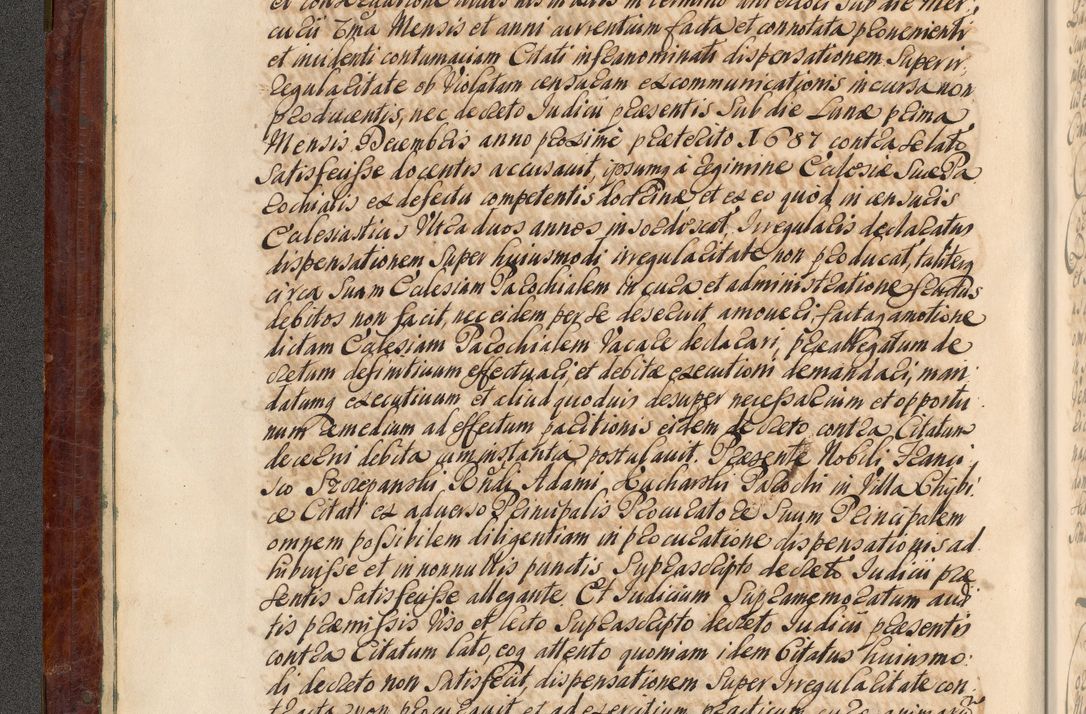 curii 7ma Mensis et anni currentium facta et connotata provenienti
et incidenti contumaciam Citati infranominati dispensationem Superir,,
regularitate ob Violatam censuram excommunicationis incursa non
producentis, nec decreto Iudicii præsentis Sub die Lunæ prima
Mensis Decembris anno proxime præterito 1687 contra se lato
Satisfecisse docentis accusavit, ipsumq̃ à regimine Ecclesiæ Suæ Pa
rochialis ex defectu competentis doctrinæ et ex eo quòd in censuris
Ecclesiasticis Ultra duos annos insorduscat, Irregularis declaratus
dispensationem Super huiusmodi irregularitate non producat, taliterq̃
circa Suam Ecclesiam Parochialem in cura et administratione fructus
debitos non facit, nec eidem per se deservit amoveri, factaq̃ amotione
dictam Ecclesiam Parochialem Vacare declarari, præallegatum de
cretum definitivum effectuari, et debitæ executioni demandari, man
datumq̃ executivum et aliud quoduis desuper necessarium et opportu
num remedium ad effectum paritionis eidem decreto contra Citatum
decerni debita cum instantia postulavit. Præsente Nobili Franci
sco Szczepanski Rñdi Adami Kucharski Parochi in Villa Chybi
ce Citati ex adverso Principalis Procuratore Suum Principalem
omnem possibilem diligentiam in procuratione dispensationis ad
hibuisse et in nonnullis punctis Suprascripto decreto Iudicii præ
sentis Satisfecisse allegante. Et Iudicium Supramemoratum audi
tis præmissis Viso et lecto Suprascripto decreto Iudicii præsentis
contra Citatum lato, eoq̃ attento quoniam idem Citatus huiusmo
di decreto non Satisfecit, dispensationem Super Irregularitate con